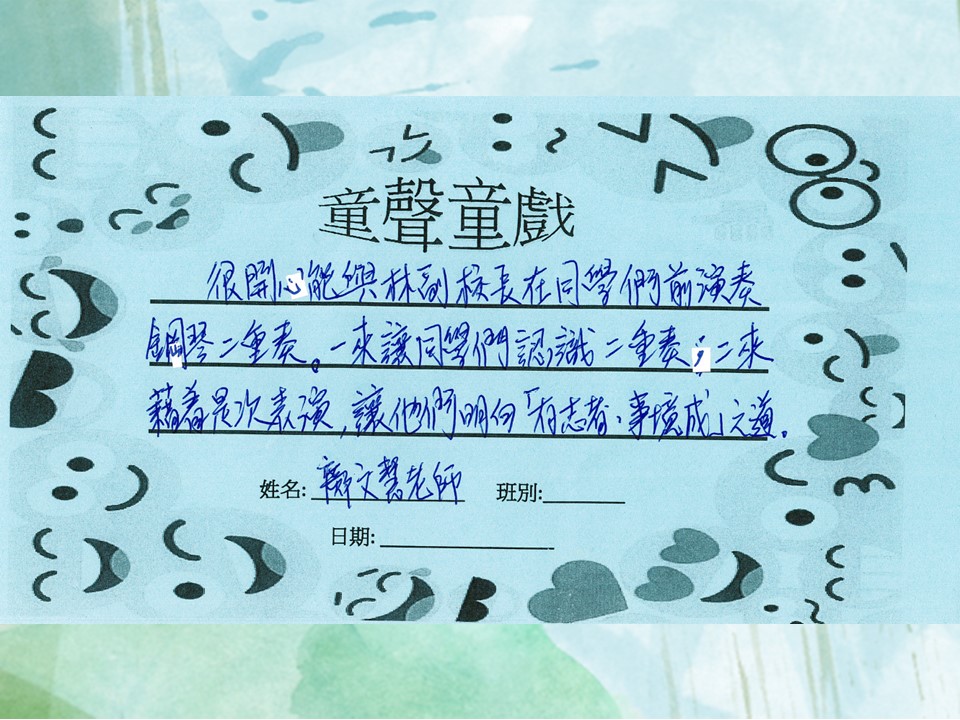 童聲童戲
很開心能與林副校長在同學們前演奏
鋼琴二重奏。一來讓同學們認識二重奏；二來
藉着是次表演，讓他們明白「有志者，事境成」之道。
姓名: 鄭文慧老師 班別:
日期: